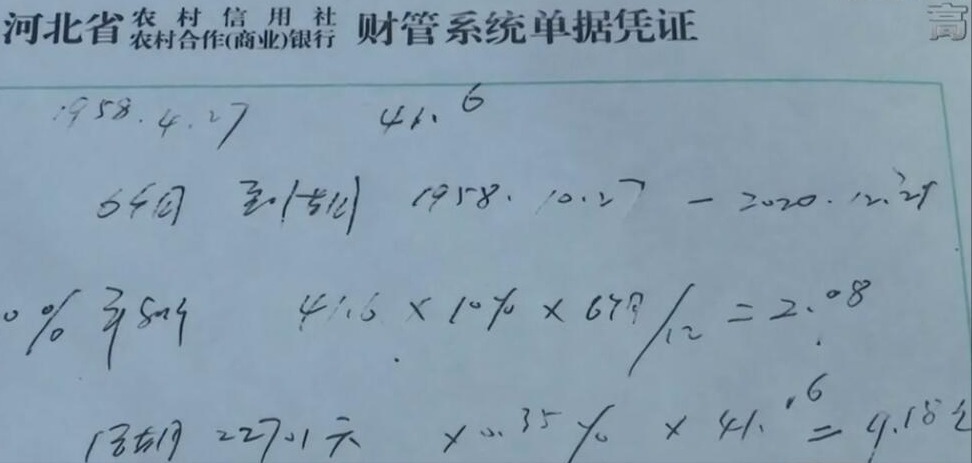 河北省农村信用社农村合作(商业)银行 财管系统单据凭证
高
1958.4.27 41.6
6个月 到期 1958.10.27 — 2020.12.29
0% 年利率 41.6 × 10% × 6个月/12 = 2.08
活期 22701天 × 0.35% × 41.6 = 9.18元